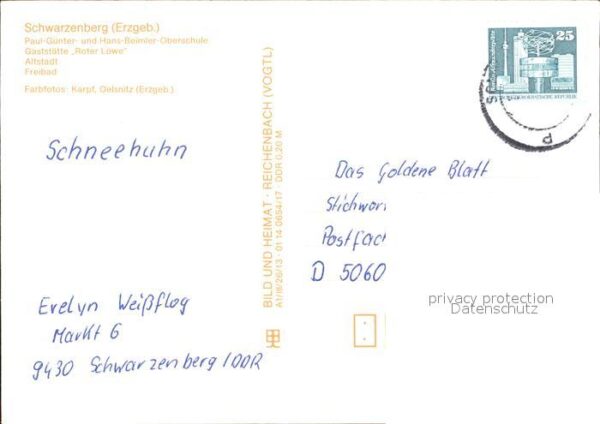 Schwarzenberg (Erzgeb.)
Paul-Günter- und Hans-Beimler-Oberschule
Gaststätte „Roter Löwe“
Altstadt
Freibad
Farbfotos: Karpf, Oelsnitz (Erzgeb.)
Schneehuhn
Evelyn Weißflog
Markt 6
9430 Schwarzenberg/DDR
BILD UND HEIMAT · REICHENBACH (VOGTL)
A1/III/26/13 01 14 0654/17 · DDR 0,20 M
25
Das Goldene Blatt
Stichwor
Postfac
D 5060
privacy protection
Datenschutz